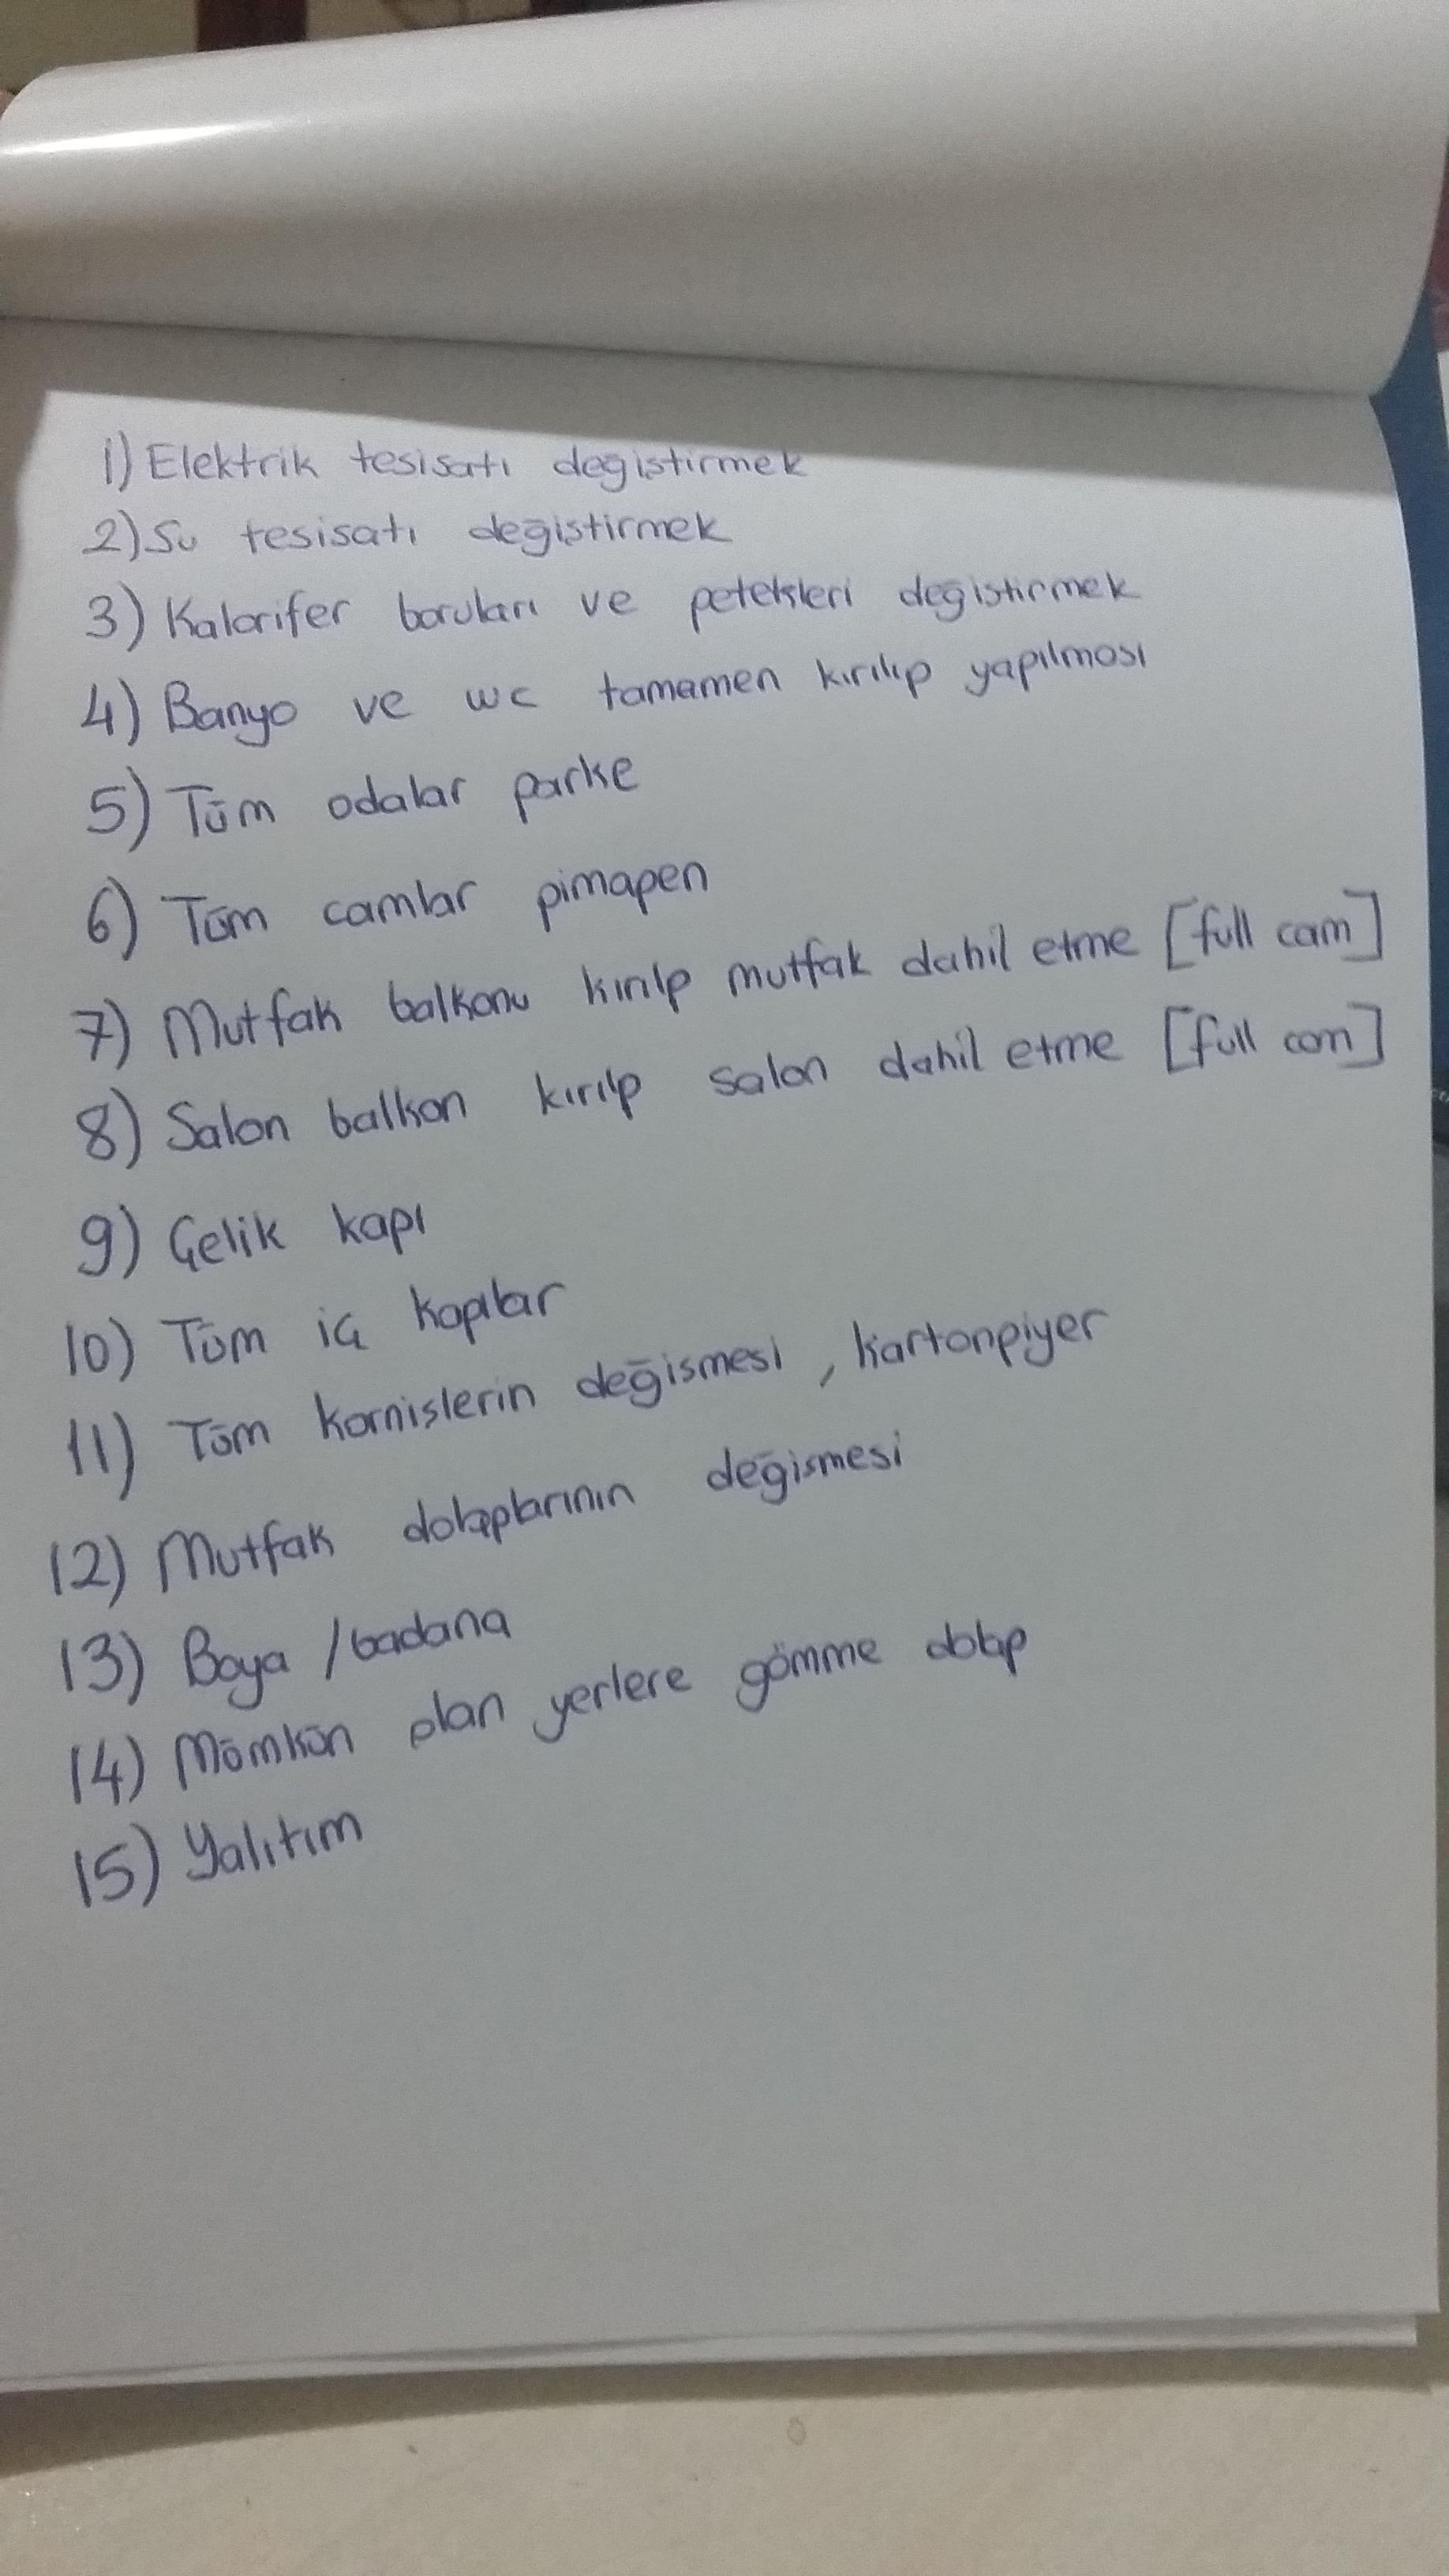 1) Elektrik tesisatı değiştirmek
2) Su tesisatı değiştirmek
3) Kalorifer boruları ve petekleri değiştirmek
4) Banyo ve wc tamamen kırılıp yapılması
5) Tüm odalar parke
6) Tüm camlar pimapen
7) Mutfak balkonu kırılp mutfak dahil etme [full cam]
8) Salon balkon kırılp salon dahil etme [full cam]
9) Çelik kapı
10) Tüm iç kapılar
11) Tüm kornişlerin değişmesi, kartonpiyer
12) Mutfak dolaplarının değişmesi
13) Boya / badana
14) Mümkün olan yerlere gömme dolap
15) Yalıtım